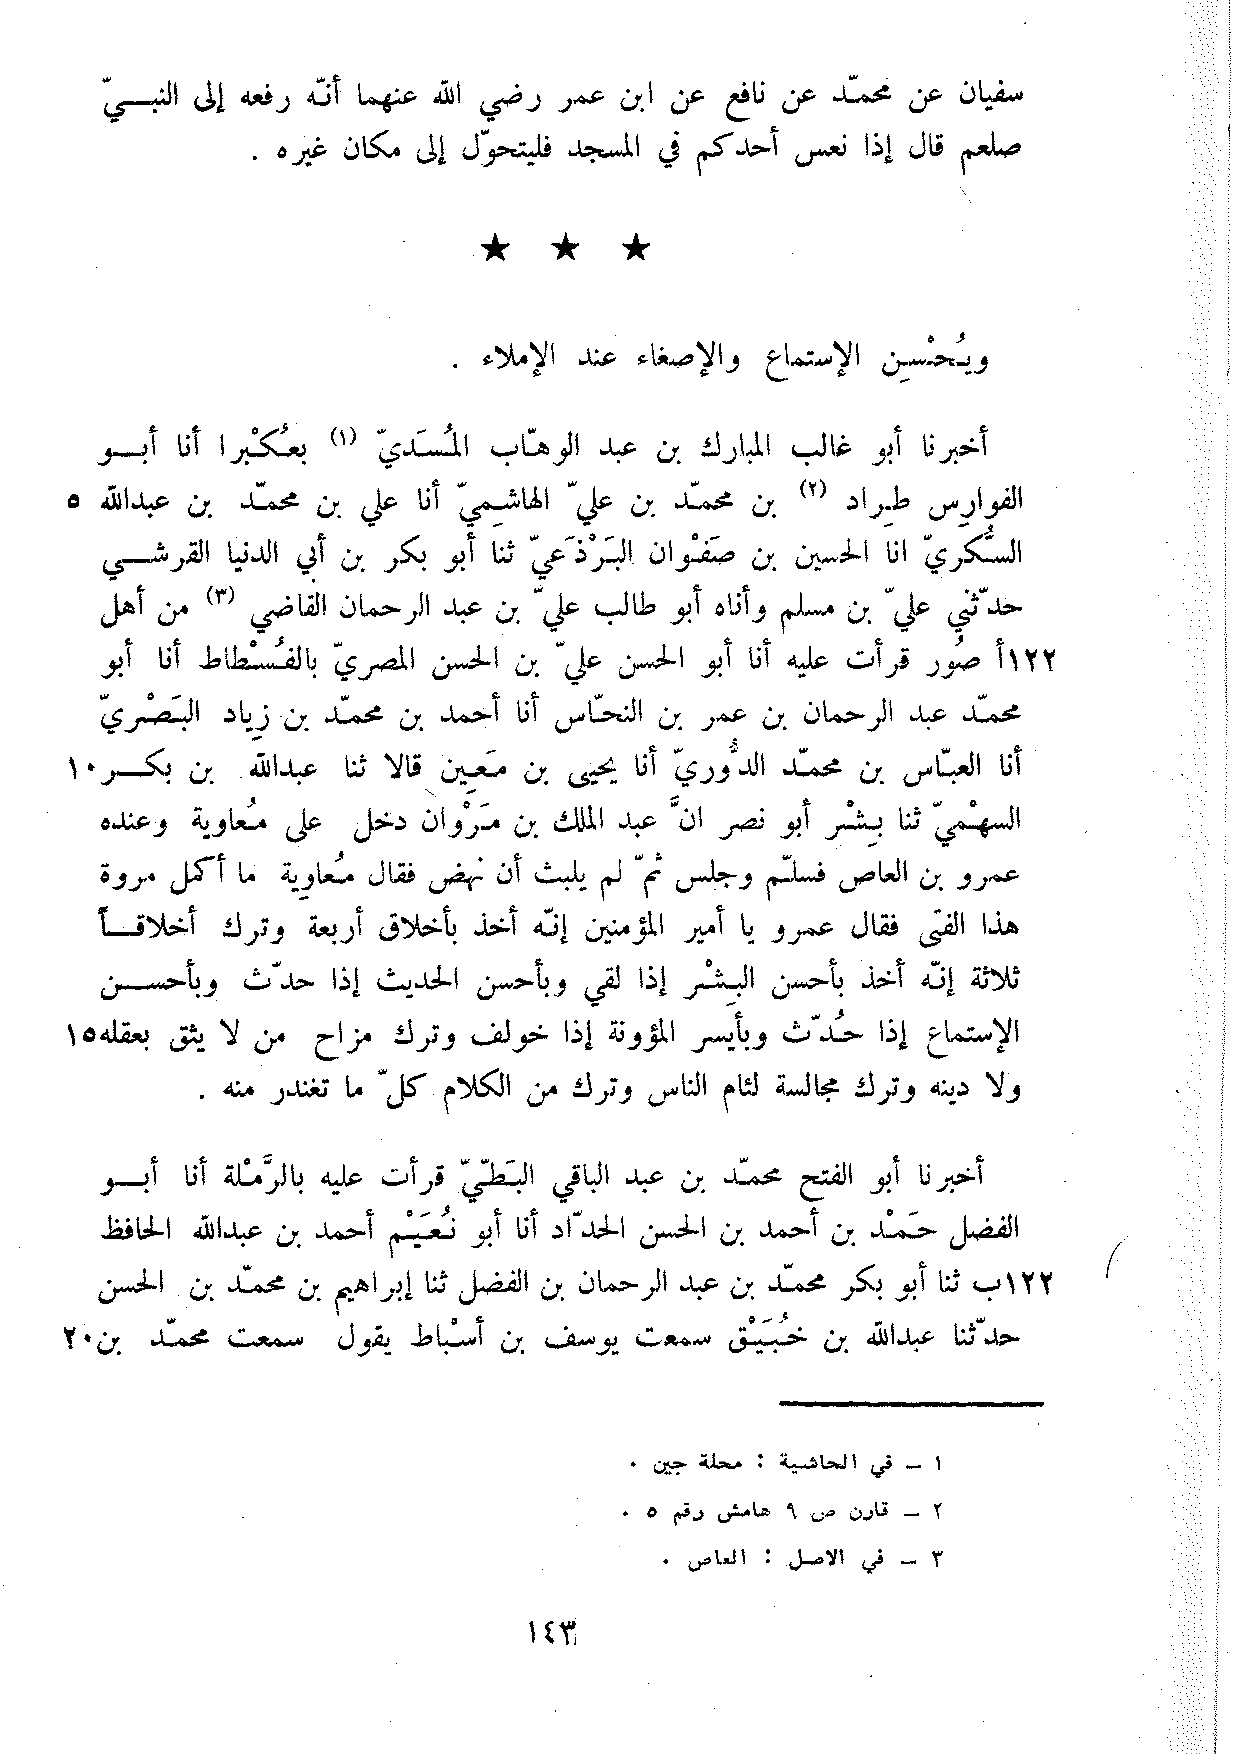 سفيان عن محمّد عن نافع عن ابن عمر رضي الله عنهما أنّه رفعه إلى النبيّ
صلعم قال إذا نعس أحدكم في المسجد فليتحوّل إلى مكان غيره .
★ ★ ★
ويُحْسِن الإستماع والإصغاء عند الإملاء .
أخبرنا أبو غالب المبارك بن عبد الوهّاب المُسَدّيّ (١) بعُكْبرا أنا أبو
الفوارِس طِراد (٢) بن محمّد بن عليّ الهاشِميّ أنا علي بن محمّد بن عبدالله ٥
السُّكريّ انا الحسين بن صَفْوان البَرْذَعيّ ثنا أبو بكر بن أبي الدنيا القرشي
حدّثني عليّ بن مسلم وأناه أبو طالب عليّ بن عبد الرحمان القاضي (٣) من أهل
١٢٢أ صُور قرأت عليه أنا أبو الحسن عليّ بن الحسن المصريّ بالفُسْطاط أنا أبو
محمّد عبد الرحمان بن عمر بن النحّاس أنا أحمد بن محمّد بن زِياد البَصْريّ
أنا العبّاس بن محمّد الدُّوريّ أنا يحيى بن مَعِين قالا ثنا عبدالله بن بكر ١٠
السهْميّ ثنا بِشْر أبو نصر انّ عبد الملك بن مَرْوان دخل على مُعاوية وعنده
عمرو بن العاص فسلّم وجلس ثمّ لم يلبث أن نهض فقال مُعاوِية ما أكمل مروة
هذا الفتى فقال عمرو يا أمير المؤمنين إنّه أخذ بأخلاق أربعة وترك أخلاقاً
ثلاثة إنّه أخذ بأحسن البِشْر إذا لقي وبأحسن الحديث إذا حدّث وبأحسن
الإستماع إذا حُدّث وبأيسر المؤونة إذا خولف وترك مزاح من لا يثق بعقله ١٥
ولا دينه وترك مجالسة لئام الناس وترك من الكلام كلّ ما تغندر منه .
أخبرنا أبو الفتح محمّد بن عبد الباقي البَطّيّ قرأت عليه بالرَّمْلة أنا أبو
الفضل حَمْد بن أحمد بن الحسن الحدّاد أنا أبو نُعَيْم أحمد بن عبدالله الحافظ
١٢٢ب ثنا أبو بكر محمّد بن عبد الرحمان بن الفضل ثنا إبراهيم بن محمّد بن الحسن
حدّثنا عبدالله بن خُبَيْق سمعت يوسف بن أسْباط يقول سمعت محمّد بن ٢٠
١ – في الحاشية : محلة جين .
٢ – قارن ص ٩ هامش رقم ٥ .
٣ – في الاصل : العاص .
١٤٣